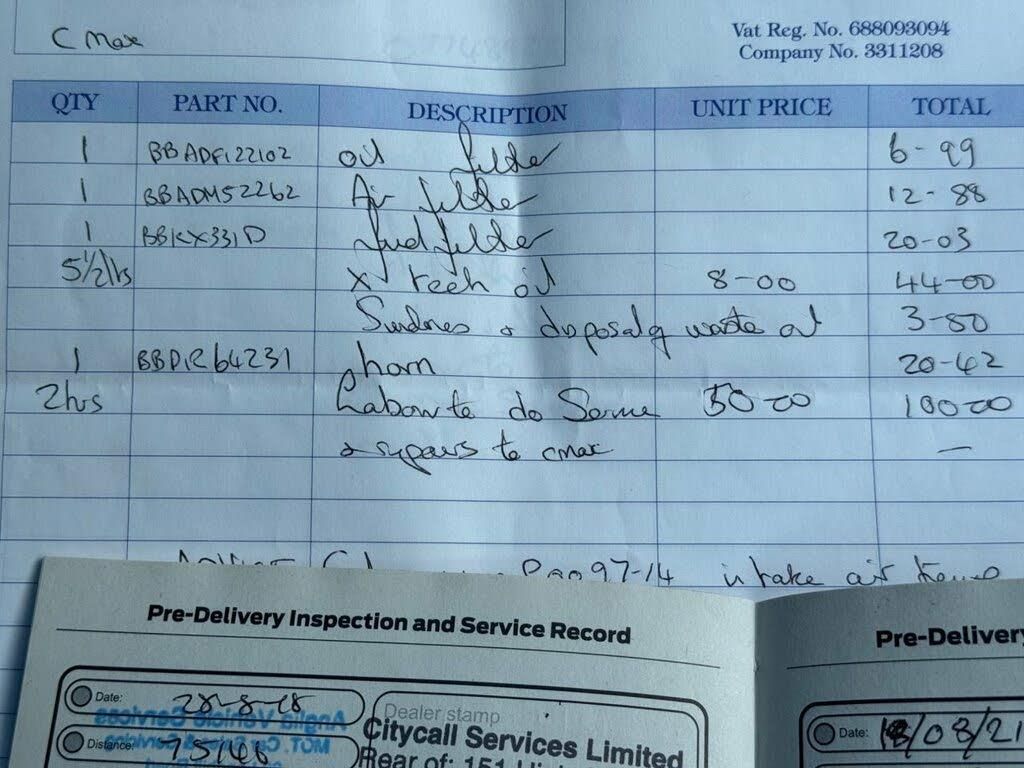 C Max
Vat Reg. No. 688093094
Company No. 3311208
QTY PART NO. DESCRIPTION UNIT PRICE TOTAL
1 BBADF122102 oil filter 6-99
1 BBADM52262 Air filter 12-88
1 BBKX331D fuel filter 20-03
5½ltrs X tech oil 8-00 44-00
Sundries & disposal of waste oil 3-80
1 BBDR64231 horn 20-42
2hrs Labour to do Service 50-00 100-00
& repairs to cmax —
P0097-14 intake air temp
Pre-Delivery Inspection and Service Record
Pre-Delivery
Date: 28-8-18
Dealer stamp
Anglia Vehicle Services
Citycall Services Limited
Date: 18/08/21
Distance: 75146
MOT.
Rear of: 151